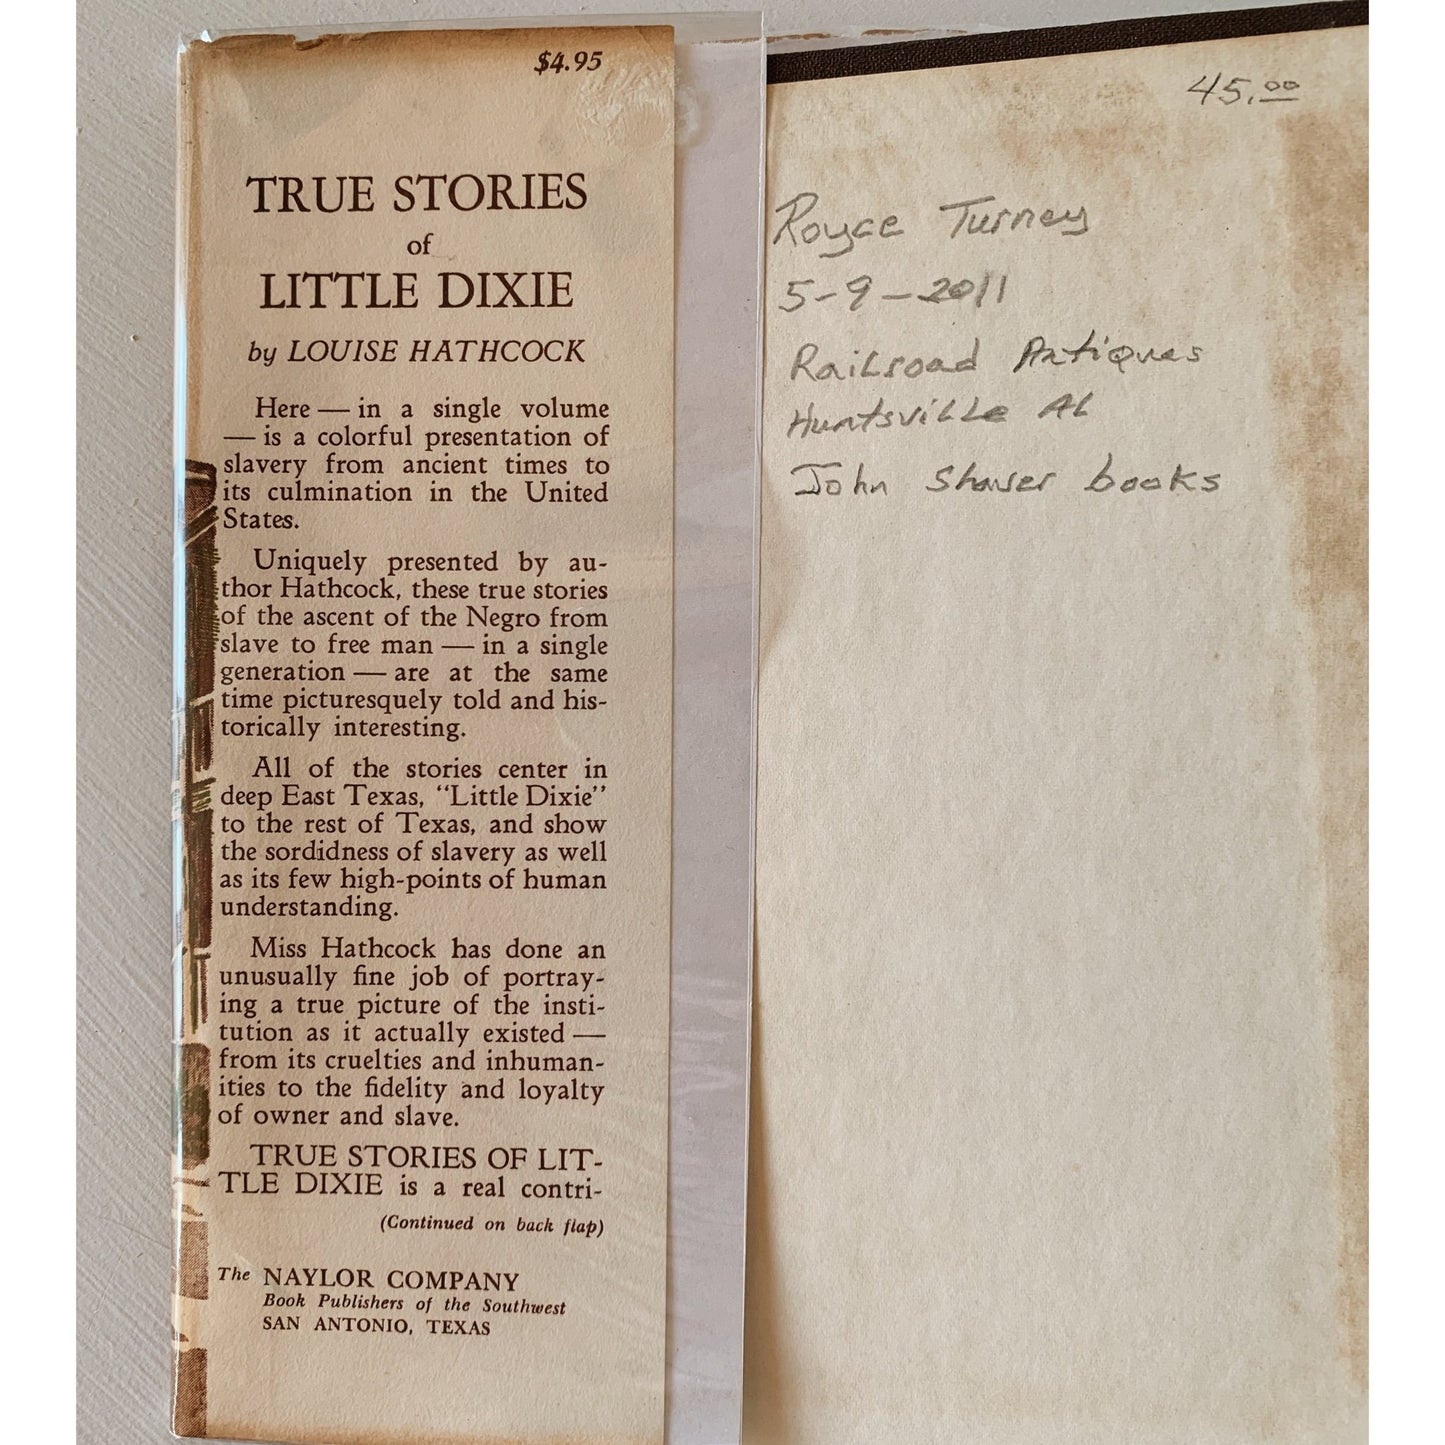 $4.95
TRUE STORIES
of
LITTLE DIXIE
by LOUISE HATHCOCK
Here — in a single volume
— is a colorful presentation of
slavery from ancient times to
its culmination in the United
States.
Uniquely presented by au-
thor Hathcock, these true stories
of the ascent of the Negro from
slave to free man — in a single
generation — are at the same
time picturesquely told and his-
torically interesting.
All of the stories center in
deep East Texas, “Little Dixie”
to the rest of Texas, and show
the sordidness of slavery as well
as its few high-points of human
understanding.
Miss Hathcock has done an
unusually fine job of portray-
ing a true picture of the insti-
tution as it actually existed —
from its cruelties and inhuman-
ities to the fidelity and loyalty
of owner and slave.
TRUE STORIES OF LIT-
TLE DIXIE is a real contri-
(Continued on back flap)
The NAYLOR COMPANY
Book Publishers of the Southwest
SAN ANTONIO, TEXAS
45.00
Royce Turney
5-9-2011
Railroad Antiques
Huntsville AL
John Shaver books